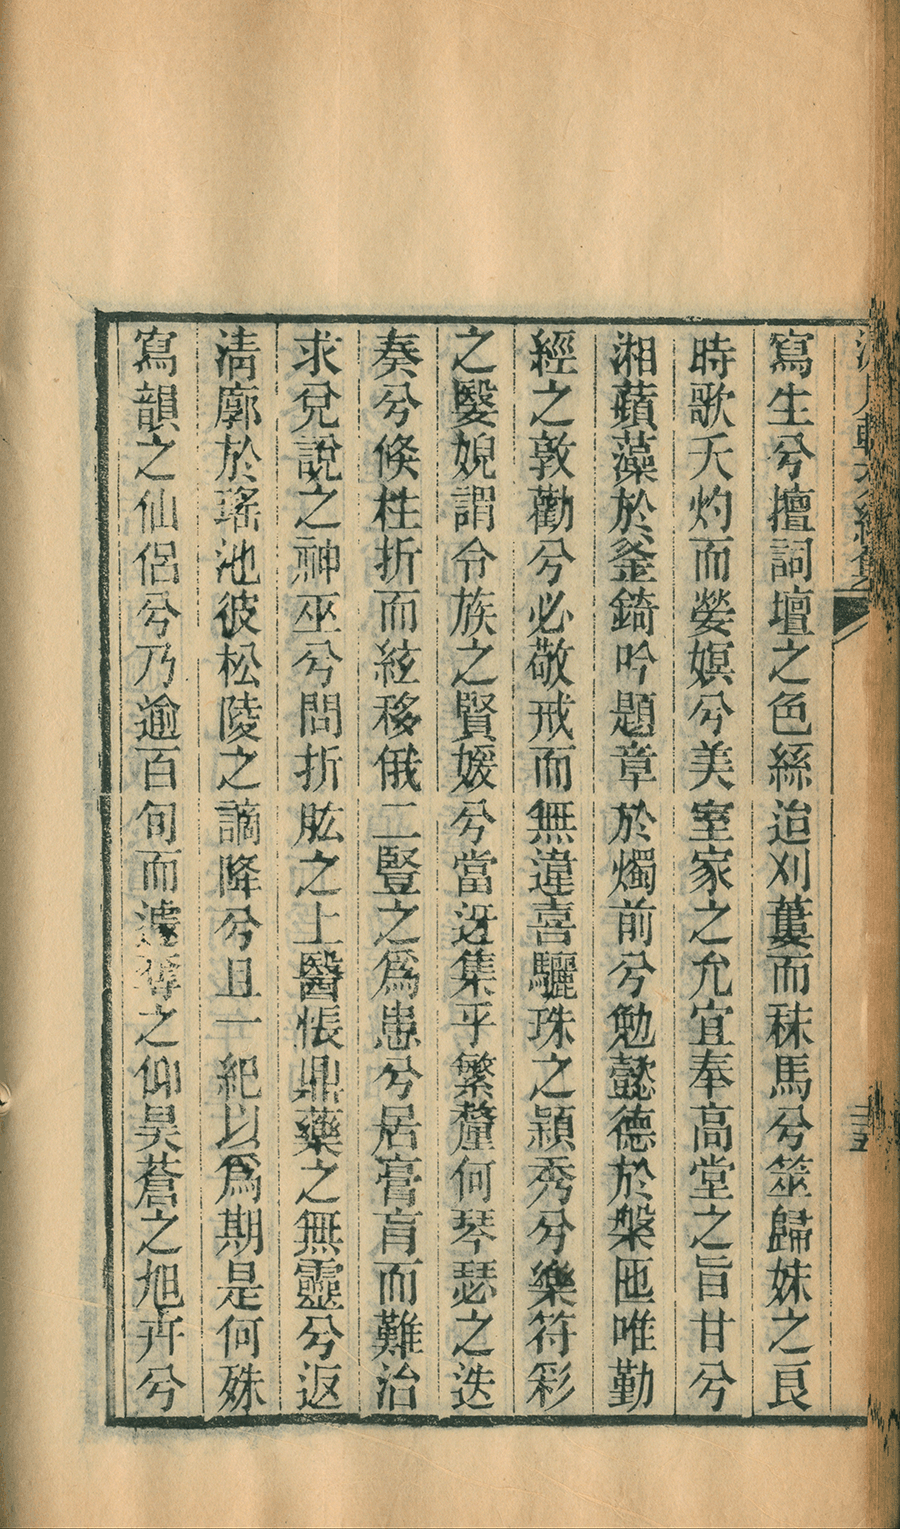 寫生兮擅詞壇之色絲迨刈蔞而秣馬兮筮歸妹之良
時歌夭灼而嫈嫇兮美室家之允宜奉高堂之旨甘兮
湘蘋藻於釜錡吟題章於燭前兮勉懿德於槃匜唯勤
經之敦勸兮必敬戒而無違喜驪珠之穎秀兮樂符彩
之嫛婗謂令族之賢媛兮當迓集乎繁釐何琴瑟之迭
奏兮倏柱折而絃移俄二豎之爲患兮居膏肓而難治
求兌說之神巫兮問折肱之上醫悵鼎藥之無靈兮返
清廓於瑤池彼松陵之謫降兮且一紀以爲期是何殊
寫韻之仙侶兮乃逾百旬而遽奪之仰昊蒼之旭卉兮